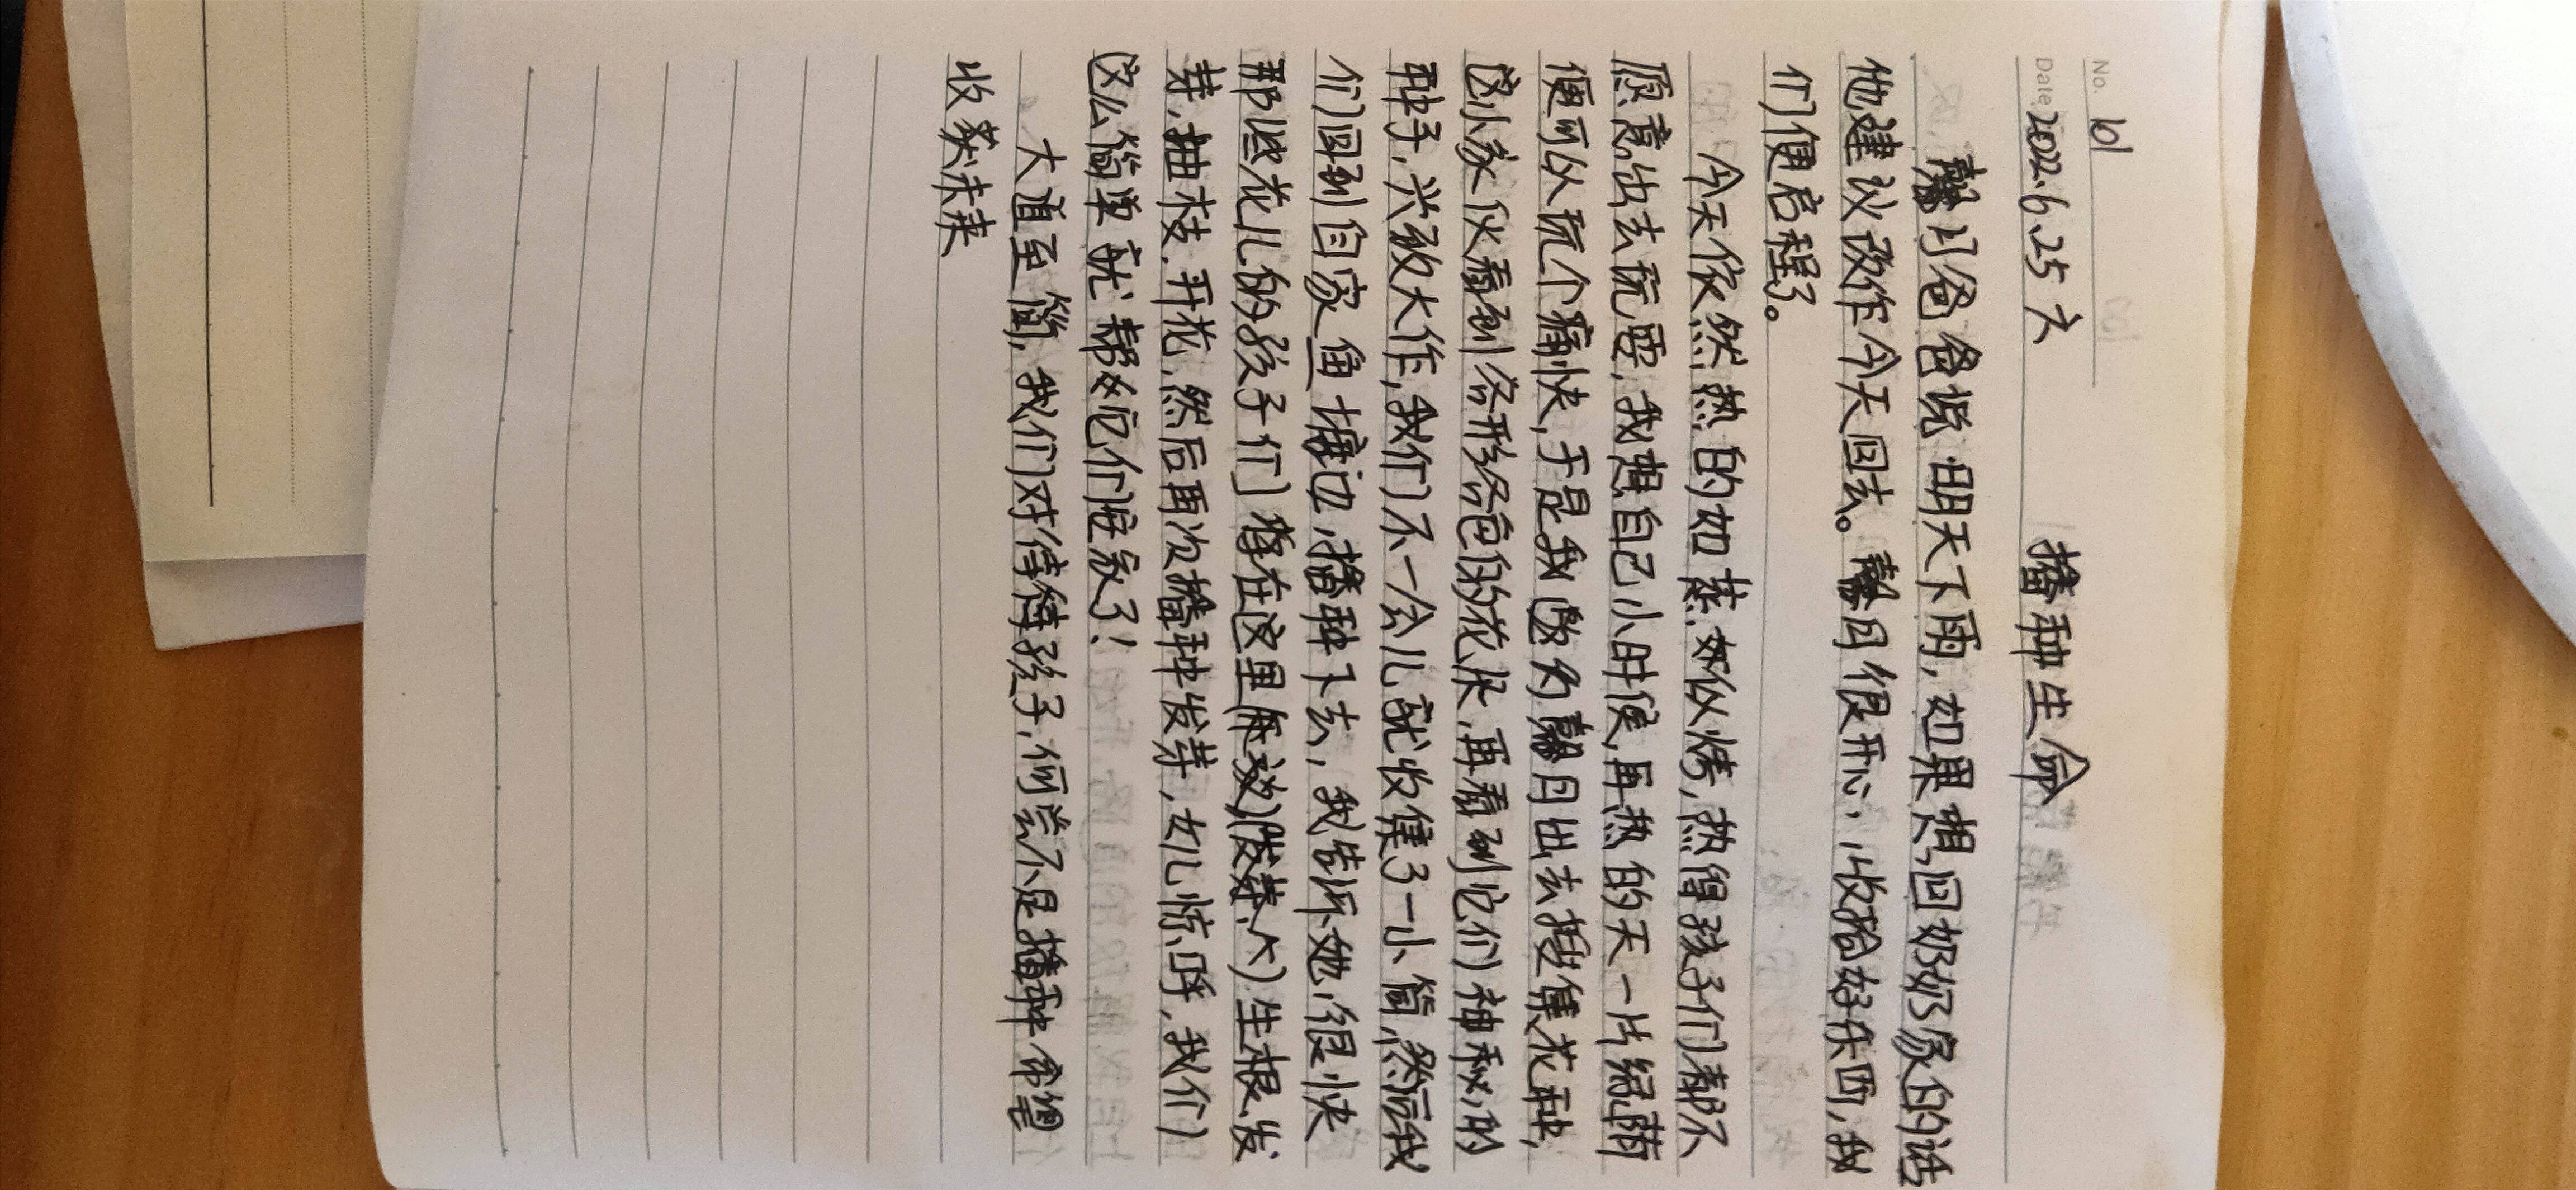 No. 101
Date 2022.6.25 六
播种生命
馨月爸爸说明天下雨,如果想回奶奶家的话
他建议改作今天回去。馨月很开心,收拾好东西,我
们便启程了。
今天依然热的如蒸如似烤,热得孩子们都不
愿意出去玩耍,我想自己小时候,再热的天一片绿荫
便可以玩个痛快,于是我邀约馨月出去搜集花种,
这小家伙看到各形各色的花朵,再看到它们神秘的
种子,兴致大作,我们不一会儿就收集了一小筒,然后我
们回到自家鱼塘边,播种下去,我告诉她,很快
那些花儿的孩子们将在这里(每致)(发芽个)生根、发
芽、抽枝、开花,然后再次播种发芽,女儿惊呼,我们
这么简单就帮助它们安家了!
大道至简,我们对待孩子,何尝不是播种希望
收获未来